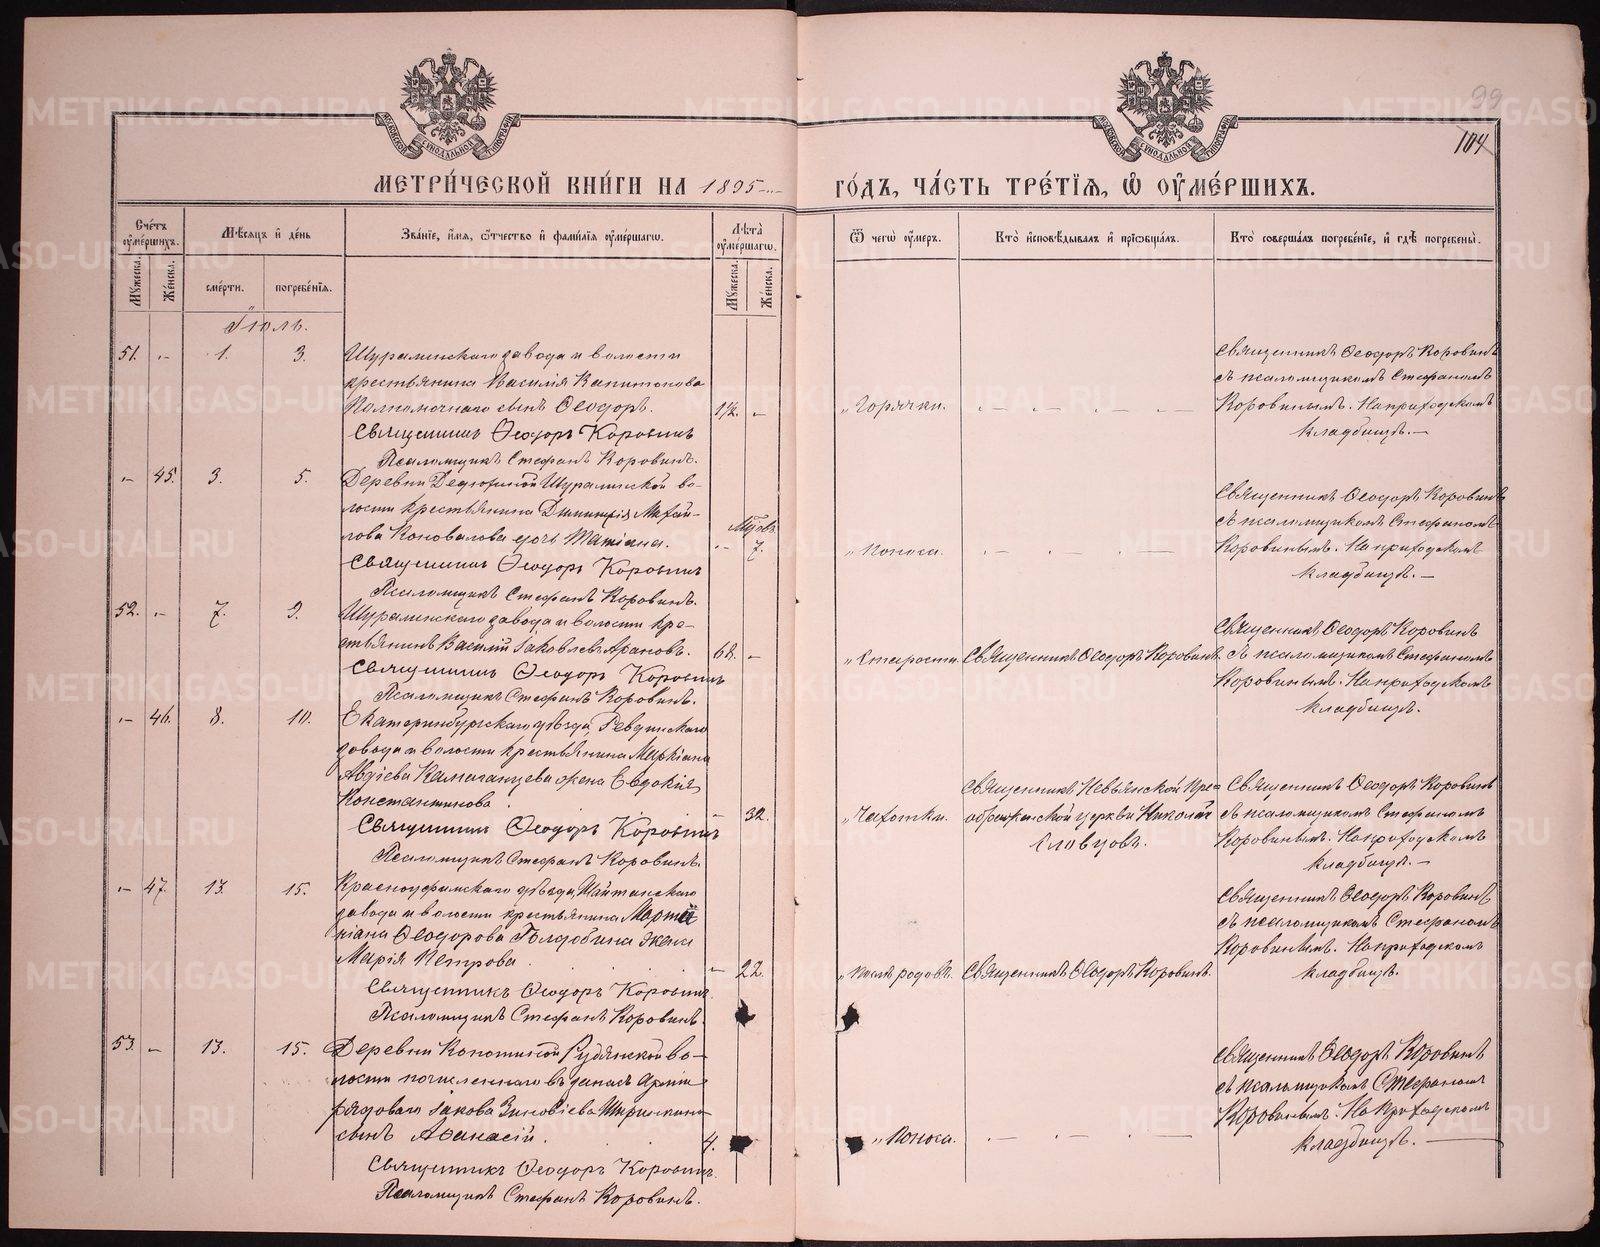 99
104
МОСКОВСКОЙ СѴНОДАЛЬНОЙ ТИПОГРАФІИ
МОСКОВСКОЙ СѴНОДАЛЬНОЙ ТИПОГРАФІИ
МЕТРИ́ЧЕСКОЙ КНИ́ГИ НА 1895
ГО́ДЪ, ЧА́СТЬ ТРЕ́ТІѦ, Ѡ҆ ОУ҆МЕ́РШИХЪ.
Сче́тъ оу҆ме́ршихъ.
Мѣ́сѧцъ и҆ де́нь
Зва́ніе, и҆́мѧ, ѻ҆́тчество и҆ фами́лїѧ оу҆ме́ршагѡ.
Лѣ́та оу҆ме́ршагѡ.
Ѿ чегѡ̀ оу҆́меръ.
Кто̀ и҆сповѣ́дывалъ и҆ прїѡбща́лъ.
Кто̀ соверша́лъ погребе́ніе, и҆ гдѣ̀ погребены̀.
Мꙋ́жеска.
Же́нска.
сме́рти.
погребе́нїѧ.
Мꙋ́жеска.
Же́нска.
Іюль.
51. - 1. 3. Шуралинскаго завода и волости
крестьянина Василія Капитонова
Полномочнаго сынъ Ѳеодоръ. 1½. -
Священникъ Ѳеодоръ Коровинъ
Псаломщикъ Стефанъ Коровинъ.
„Горячки. - - - -
Священникъ Ѳеодоръ Коровинъ
съ псаломщикомъ Стефаномъ
Коровинымъ. На приходскомъ
кладбищѣ. -
- 45. 3. 5. Деревни Шуралинской во-
лости крестьянина Димитрія Михай-
лова Коновалова дочь Татіана. - 7.
Священникъ Ѳеодоръ Коровинъ
Псаломщикъ Стефанъ Коровинъ.
„Поноса. - - -
Священникъ Ѳеодоръ Коровинъ
съ псаломщикомъ Стефаномъ
Коровинымъ. На приходскомъ
кладбищѣ. -
52. - 7. 9. Шуралинскаго завода и волости кре-
стьянинъ Василій Іаковлевъ Арановъ. 68. -
Священникъ Ѳеодоръ Коровинъ
Псаломщикъ Стефанъ Коровинъ.
„Старости. Священникъ Ѳеодоръ Коровинъ
Священникъ Ѳеодоръ Коровинъ
съ псаломщикомъ Стефаномъ
Коровинымъ. На приходскомъ
кладбищѣ.
- 46. 8. 10. Екатеринбургскаго уѣзда, Ревдинскаго
завода и волости крестьянина Маркіана
Авдіева жена Евдокія
Константинова. 32.
Священникъ Ѳеодоръ Коровинъ
Псаломщикъ Стефанъ Коровинъ.
„Чахотки.
Священникъ Невьянской Пре-
ображенской церкви Николай
Словцовъ.
Священникъ Ѳеодоръ Коровинъ
съ псаломщикомъ Стефаномъ
Коровинымъ. На приходскомъ
кладбищѣ. -
- 47. 13. 15. Красноуфимскаго уѣзда, Шайтанскаго
завода и волости крестьянина Марти-
ніана Ѳеодорова Голдобина жена
Марія Петрова. - 22.
Священникъ Ѳеодоръ Коровинъ.
Псаломщикъ Стефанъ Коровинъ.
„Послѣ родовъ. Священникъ Ѳеодоръ Коровинъ.
Священникъ Ѳеодоръ Коровинъ
съ псаломщикомъ Стефаномъ
Коровинымъ. На приходскомъ
кладбищѣ.
53. - 13. 15. Деревни Копотиной Рудянской во-
лости зачисленнаго въ запасъ арміи
рядоваго Іакова Зиновіева Ширинкина
сынъ Аѳанасій. 4. -
Священникъ Ѳеодоръ Коровинъ.
Псаломщикъ Стефанъ Коровинъ.
„Поноса. - - -
Священникъ Ѳеодоръ Коровинъ
съ псаломщикомъ Стефаномъ
Коровинымъ. На приходскомъ
кладбищѣ. -
METRIKI.GASO-URAL.RU